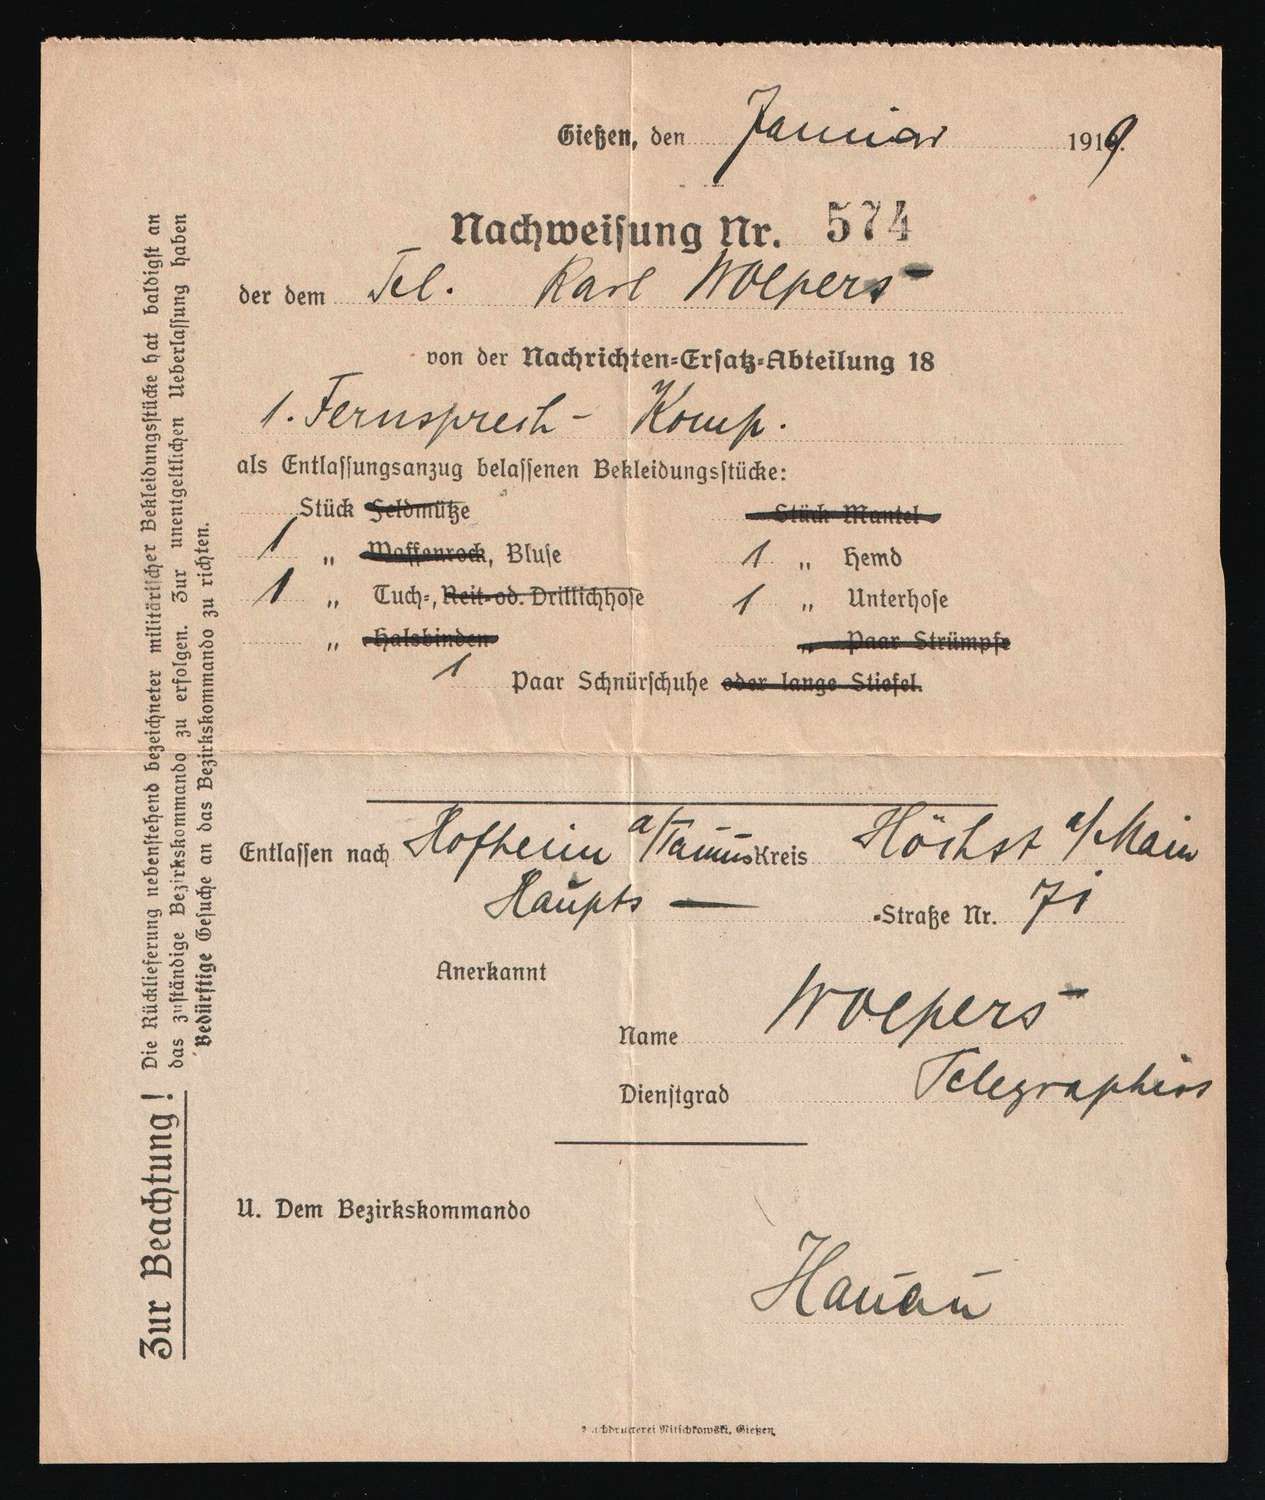 Gießen, den Januar 1919.
Nachweisung Nr. 574
der dem Tel. Karl Wolpers
von der Nachrichten-Ersatz-Abteilung 18
1. Fernsprech- Komp.
als Entlassungsanzug belassenen Bekleidungsstücke:
Stück Feldmütze Stück Mantel
1 „ Waffenrock, Bluse 1 „ Hemd
1 „ Tuch-, Reit- od. Drillichhose 1 „ Unterhose
„ Halsbinden „ Paar Strümpfe
1 Paar Schnürschuhe oder lange Stiefel.
Entlassen nach Hofheim a/Taunus Kreis Höchst a/Main
Haupts — -Straße Nr. 71
Anerkannt
Name Wolpers
Dienstgrad Telegraphist
U. Dem Bezirkskommando
Hanau
Zur Beachtung! Die Rücklieferung nebenstehend bezeichneter militärischer Bekleidungsstücke hat baldigst an
das zuständige Bezirkskommando zu erfolgen. Zur unentgeltlichen Ueberlassung haben
Bedürftige Gesuche an das Bezirkskommando zu richten.
Buchdruckerei Nitschkowski, Gießen